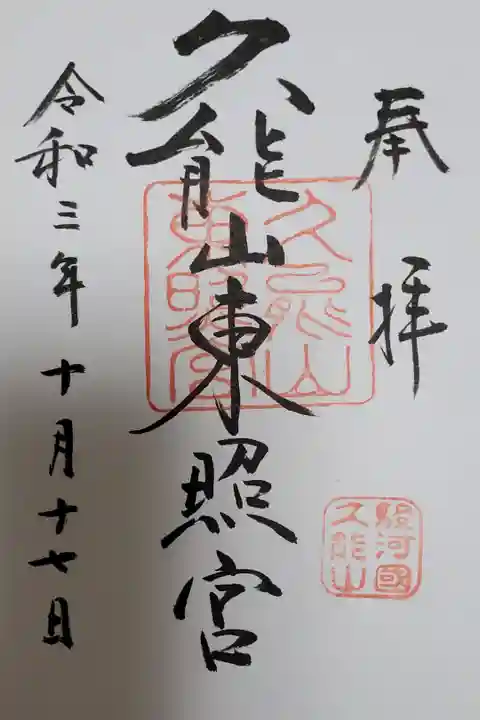 奉拝
駿河國
久能山
久能山東照宮
久能山
東照宮
令和三年十月十七日